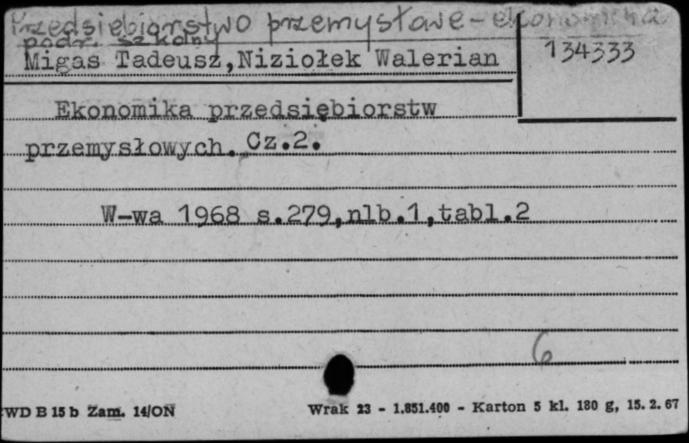 Przedsiębiorstwo przemysłowe - ekonomika
podr. szkolny
Migas Tadeusz,Niziołek Walerian
134333
Ekonomika przedsiębiorstw
przemysłowych. Cz.2.
W-wa 1968 s.279,nlb.1,tabl.2
6
CWD B 15 b Zam. 14/ON
Wrak 23 - 1.851.400 - Karton 5 kl. 180 g, 15. 2. 67